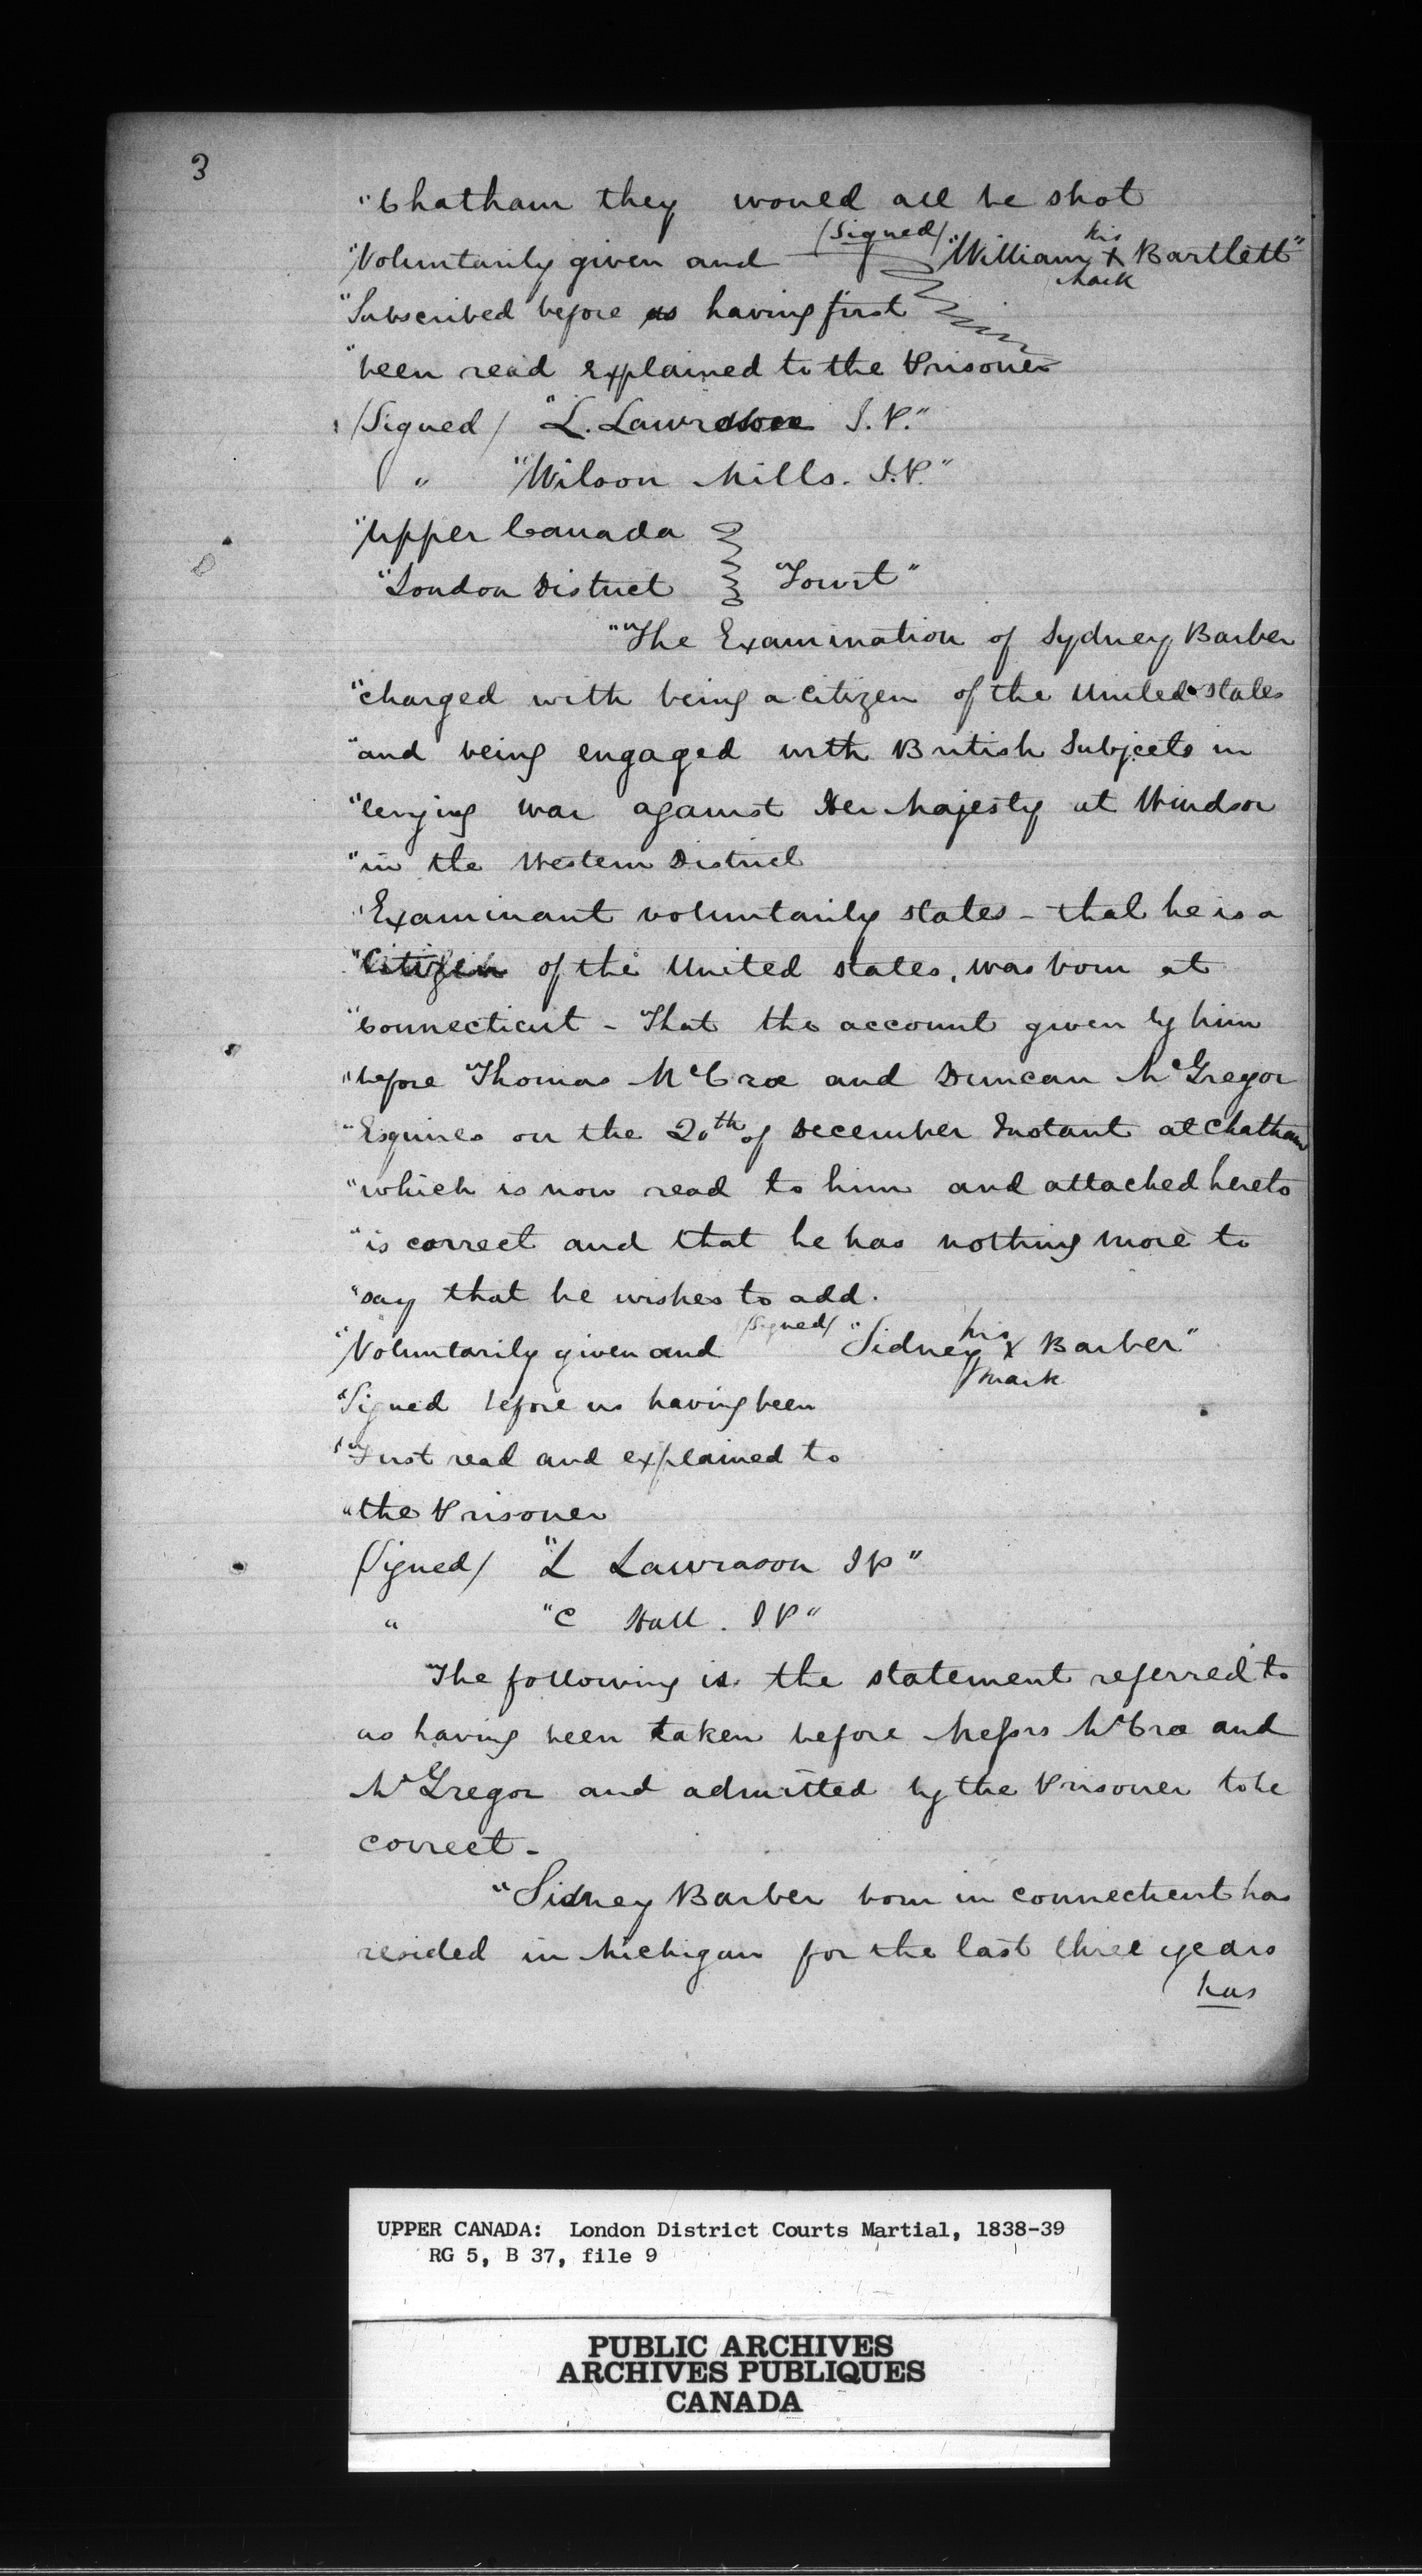 3
"Chatham they would all be shot
"Voluntarily given and (Signed) "William his X mark Bartlett"
"Subscribed before us having first
"been read explained to the Prisoner
(Signed) "L. Lawrason J.P."
" "Wilson Mills. J.P."
"Upper Canada
"London District } "Towit"
"The Examination of Sydney Barber
"charged with being a citizen of the United States
"and being engaged with British Subjects in
"levying war against Her Majesty at Windsor
"in the Western District
"Examinant voluntarily states - that he is a
"Citizen of the United States, was born at
"Connecticut - That the account given by him
"before Thomas McCrae and Duncan McGregor
"Esquires on the 20th of December Instant at Chatham
"which is now read to him and attached hereto
"is correct and that he has nothing more to
"say that he wishes to add.
"Voluntarily given and (Signed) "Sidney his X mark Barber"
"Signed before us having been
"First read and explained to
"the Prisoner
(Signed) "L Lawrason JP"
" "C Hall. JP"
The following is the statement referred to
as having been taken before Messrs McCrae and
McGregor and admitted by the Prisoner to be
correct -
"Sidney Barber born in Connecticut has
resided in Michigan for the last three years
has
UPPER CANADA: London District Courts Martial, 1838-39
RG 5, B 37, file 9
PUBLIC ARCHIVES
ARCHIVES PUBLIQUES
CANADA